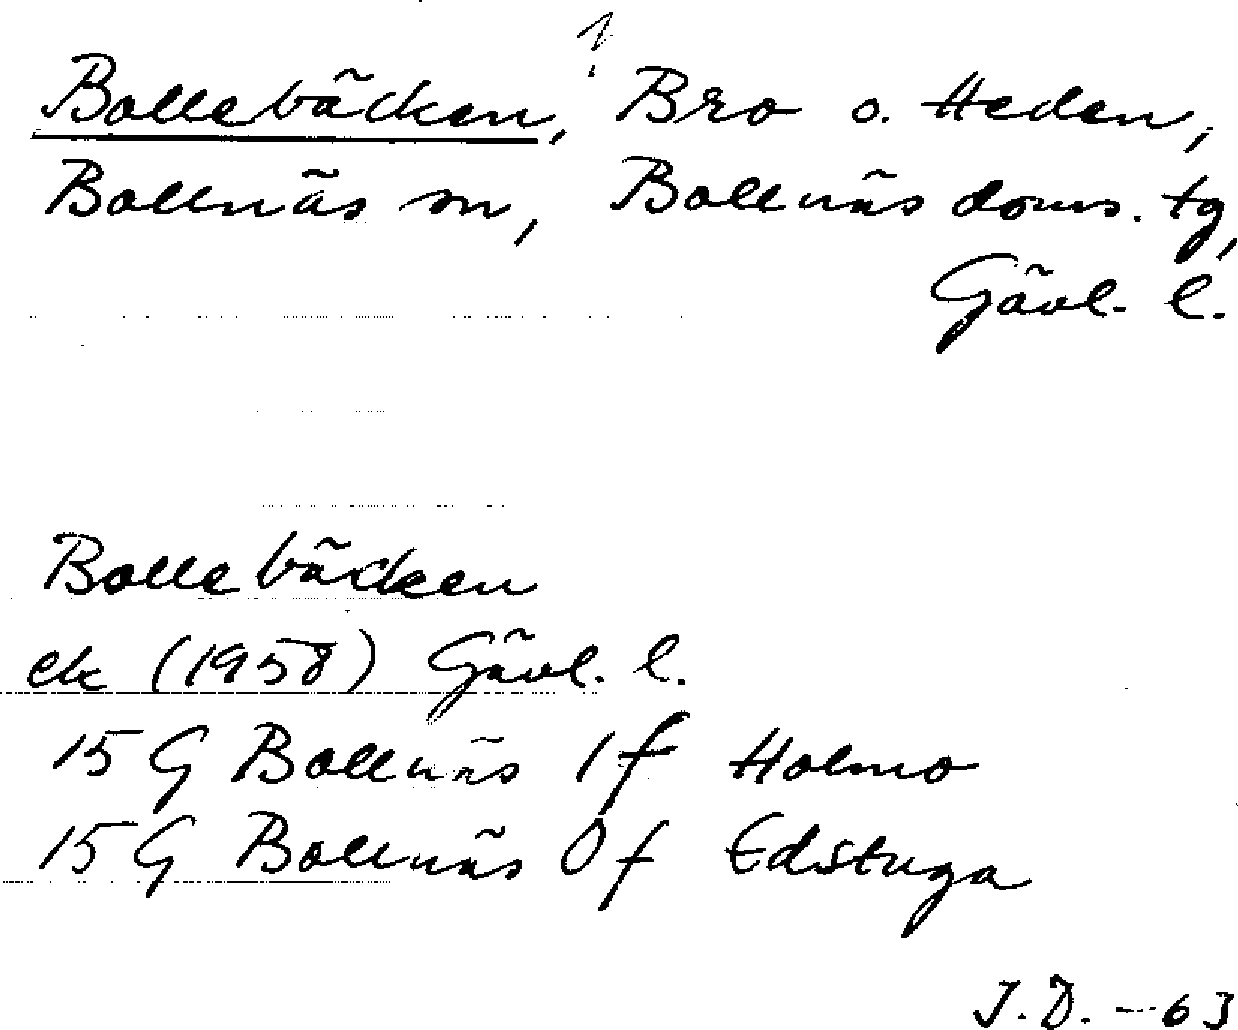 Bollebäcken, Bro o. Heden,
Bollnäs sn, Bollnäs doms. tg,
Gävl. l.
Bollebäcken
ek (1958) Gävl. l.
15 G Bollnäs 1f Holmo
15 G Bollnäs 0f Edstuga
J.D. -63